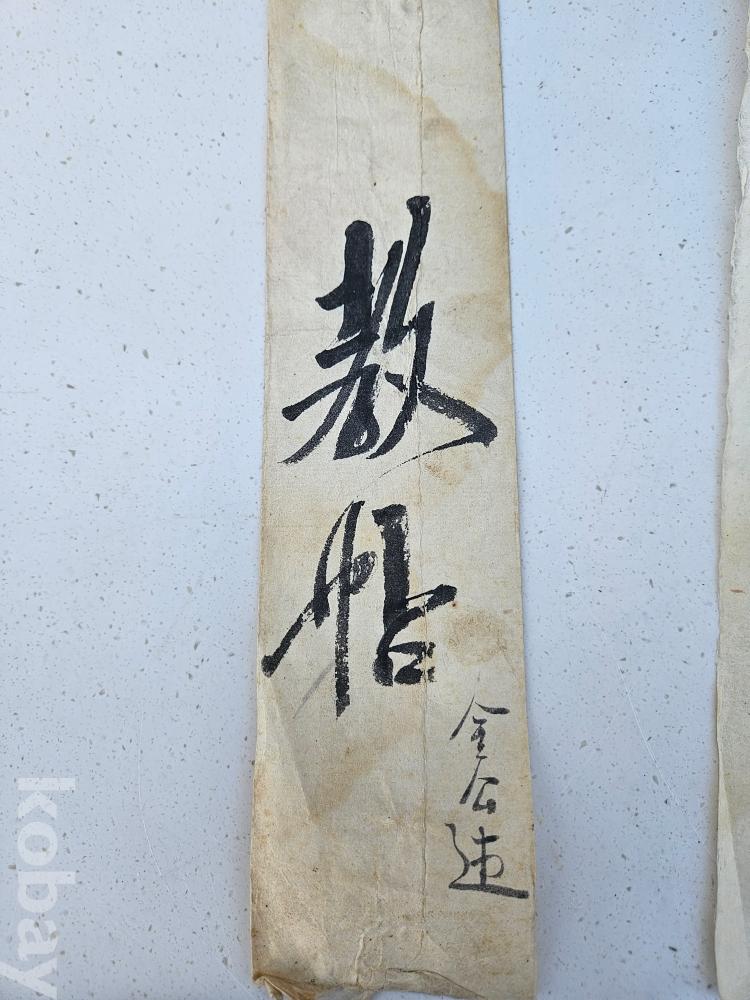 教帖
金公述
kobay